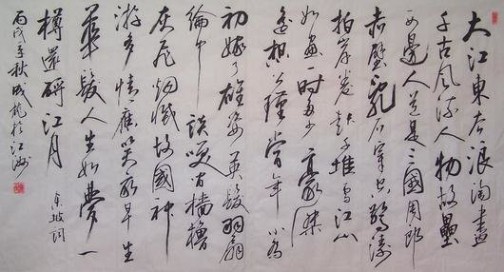 大江東去浪淘盡
千古風流人物故壘
西邊人道是三國周郎
赤壁亂石穿空驚濤
拍岸卷起千堆雪江山
如畫一時多少豪傑
遙想公瑾當年小喬
初嫁了雄姿英發羽扇
綸巾談笑間檣櫓
灰飛烟滅故國神
游多情應笑我早生
華髮人生如夢一
樽還酹江月 東坡詞
丙戌年秋